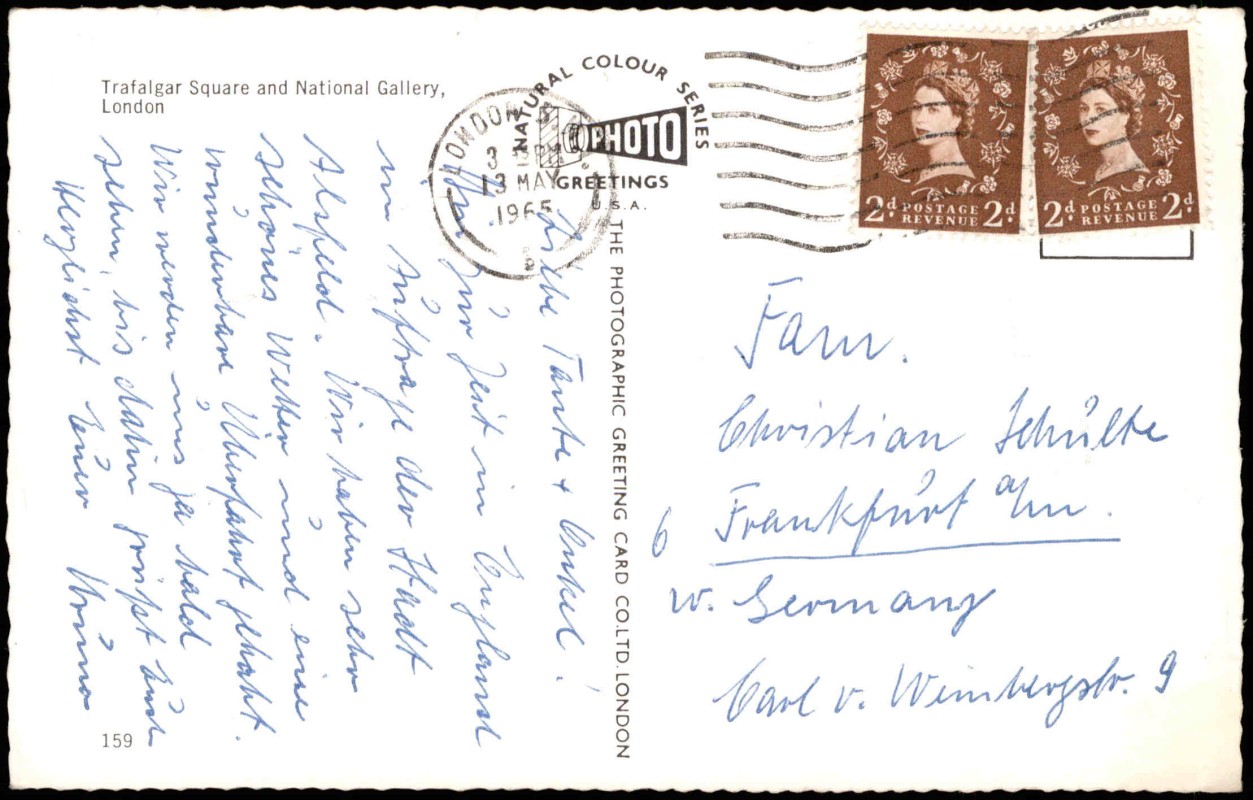 Trafalgar Square and National Gallery,
London
NATURAL COLOUR SERIES
PHOTO
GREETINGS
U.S.A.
LONDON
3
13 MAY
1965
2d POSTAGE REVENUE 2d
2d POSTAGE REVENUE 2d
THE PHOTOGRAPHIC GREETING CARD CO.LTD. LONDON
Liebe Tante + Onkel!
zur Zeit in England
im Auftrage der Stadt
Alsfeld. Wir haben sehr
schönes Wetter und eine
wunderbare Überfahrt gehabt.
Wir werden uns ja bald
sehen, bis dahin grüßt Euch
Herzlichst Euer
Fam.
Christian Schulte
6 Frankfurt a/m.
W. Germany
Carl v. Weinbergstr. 9
159